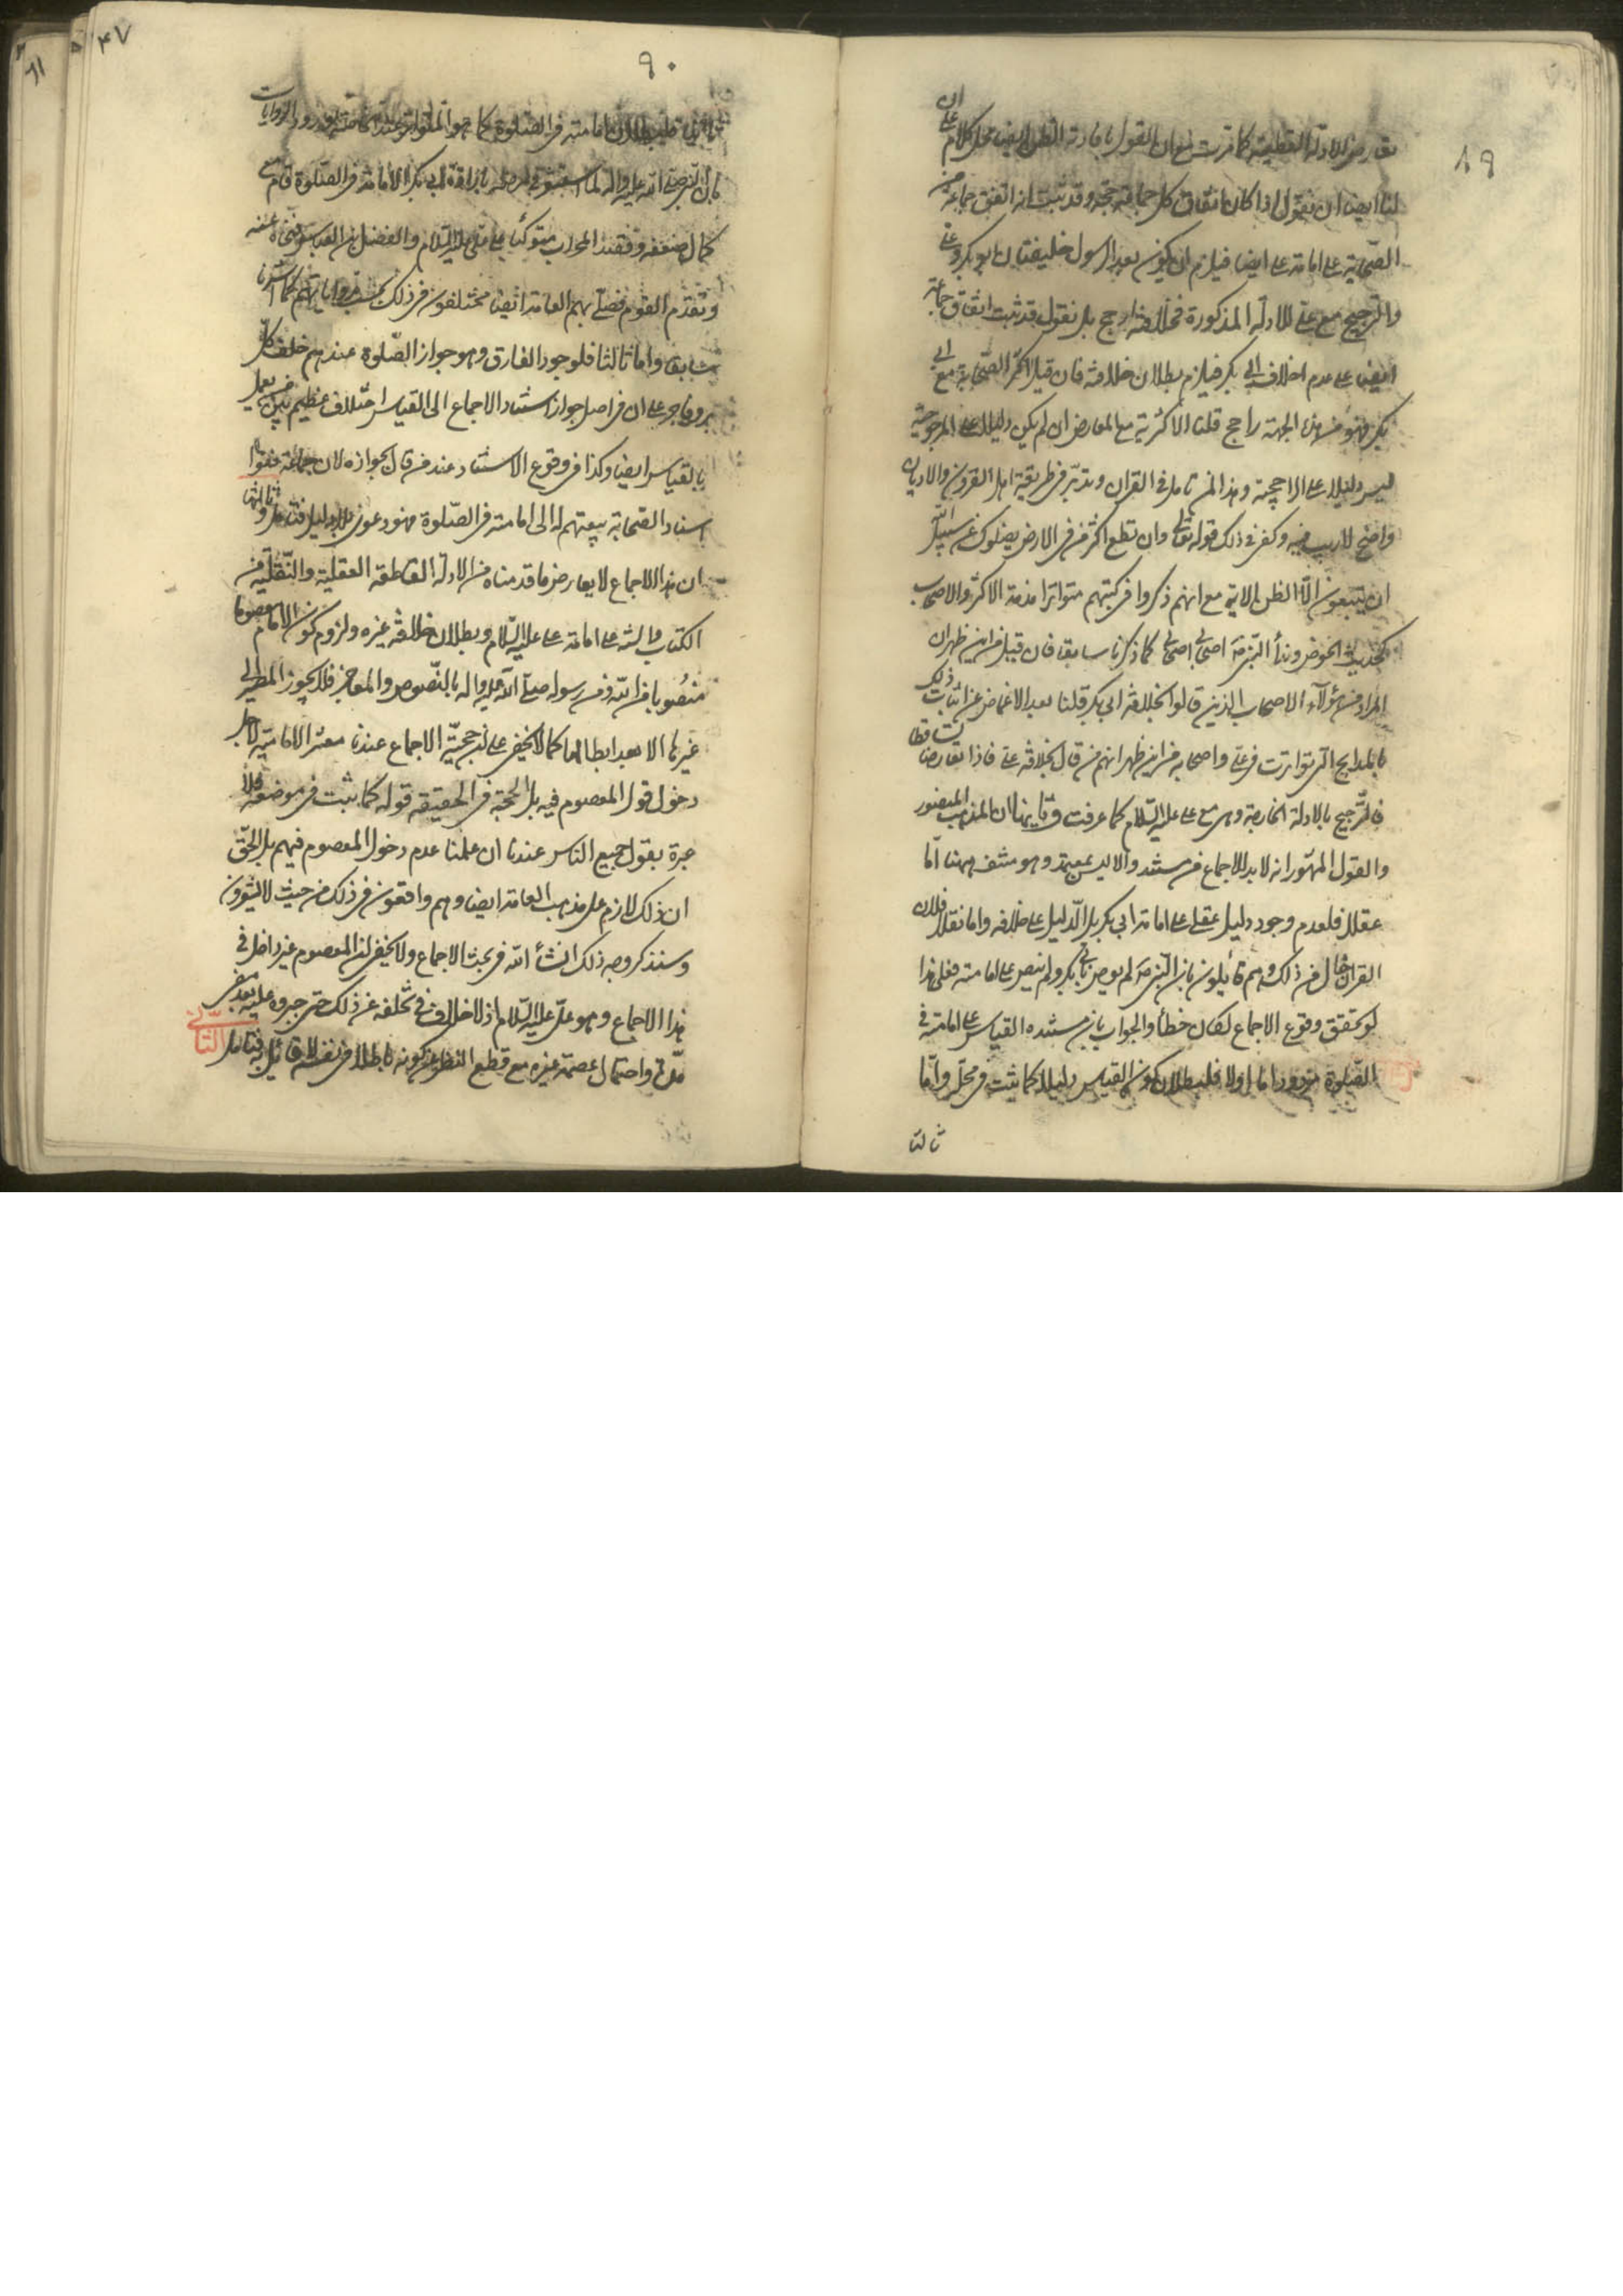 ٨٩
تعارض للادلة القطعية كما ترى مع ان القول بافادته الظن ايضا محل كلام على ان
لنا ايضا ان نقول اذا كان اتفاق كل جماعة حجة وقد ثبت انه اتفق جماعة من
الصحابة على امامة على ايضا فيلزم ان يكون بعد الرسول خليفتان ابو بكر وعلى
والترجيح مع على للادلة المذكورة فخلافته ارجح بل نقول قد ثبت اتفاق جماعة
ايضا على عدم خلافة ابى بكر فيلزم بطلان خلافته فان قيل اكثر الصحابة مع ابى
بكر فهو من هذه الجهة راجح قلنا الاكثرية مع المعارض ان لم يكن دليلا على المرجوحية
ليس دليلا على الراجحية وهذا لمن تامل فى القران وتدبر فى طريقة اهل القرون والاديان
واضح لا ريب فيه وكفى فى ذلك قوله تعالى وان تطع اكثر من فى الارض يضلوك عن سبيل الله
ان يتبعون الا الظن الاية مع انهم ذكروا فى كتبهم متواترا مذمة الاكثر والاصحاب
كحديث الحوض ونداء النبى ص اصحابى اصحابى كما ذكرنا سابقا فان قيل من اين ظهر ان
المراد من هؤلاء الاصحاب الذين قالوا بخلافة ابى بكر قلنا بعد الاغماض عن اثبات ذلك
بالمدايح التى تواترت فى على واصحابه من اين ظهر انهم من قال بخلافة على فاذا تعارضا تساقطا
فالترجيح بالادلة الخارجة وهى مع على عليه السلام كما عرفت وثانيها ان المذهب المنصور
والقول المشهور انه لا بد للاجماع من مستند والا ليس بمعتمد وهو منتف ههنا اما
عقلا فلعدم وجود دليل عقلى على امامة ابى بكر بل الدليل على خلافه واما نقلا فلان
القران خال من ذلك وهم قائلون بان النبى ص لم يوص بابى بكر ولم ينص على امامته فعلى هذا
لو تحقق وقوع الاجماع لكان خطأ والجواب بان مستنده القياس على امامته فى
الصلوة مردود اما اولا فلبطلان كون القياس دليلا كما ثبت فى محله واما
ثانيا
٩٠
٤٧
ثانيا فلبطلان امامته فى الصلوة كما هو المتواتر عندنا لورود الروايات
بان النبى صلى الله عليه واله لما بابى بكر الامامة فى الصلوة قام مع
كمال ضعفه وقصد المحراب متوكئا على على عليه السلام والفضل بن العباس ونحى عنه
وتقدم القوم فصلى بهم العامة ايضا مختلفون فى ذلك بحسب رواياتهم كما اشرنا
سابقا واما ثالثا فلوجود الفارق وهو جواز الصلوة عندهم خلف كل
بر وفاجر على ان فى اصل جواز استناد الاجماع الى القياس اختلاف عظيم بين من يعمل
بالقياس ايضا وكذا فى وقوع الاستناد عند من قال بجوازه لان جماعة منعوا
اسناد الصحابة بيعتهم له الى امامته فى الصلوة فهو دعوى بلا دليل فتامل وثالثها
ان هذا الاجماع لا يعارض ما قدمناه من الادلة القاطعة العقلية والنقلية من
الكتاب والسنة على امامة على عليه السلام وبطلان خلافة غيره ولزوم كون الامام معصوما
منصوبا من الله ومن رسوله صلى الله عليه واله بالنصوص والمعاجز فلا يجوز المصير الى
غيرها الا بعد ابطالها كما لا يخفى على ان حجية الاجماع عندنا معشر الامامية لاجل
دخول قول المعصوم فيه بل الحجة فى الحقيقة قوله كما ثبت فى موضعه فلا
عبرة بقول جميع الناس عندنا ان علمنا عدم دخول المعصوم فيهم بل الحق
ان ذلك لازم على مذهب العامة ايضا وهم واقعون فى ذلك من حيث لا يشعرون
وسنذكر وجه ذلك انشاء الله فى بحث الاجماع ولا يخفى ان المعصوم غير داخل فى
هذا الاجماع وهو على عليه السلام اذ لا خلاف فى تخلفه عن ذلك حتى جبروه عليه بعد مضى
مدة واحتمال عصمة غيره مع قطع النظر عن كونه باطلا فى نفسه لا قائل به فتامل الثانى